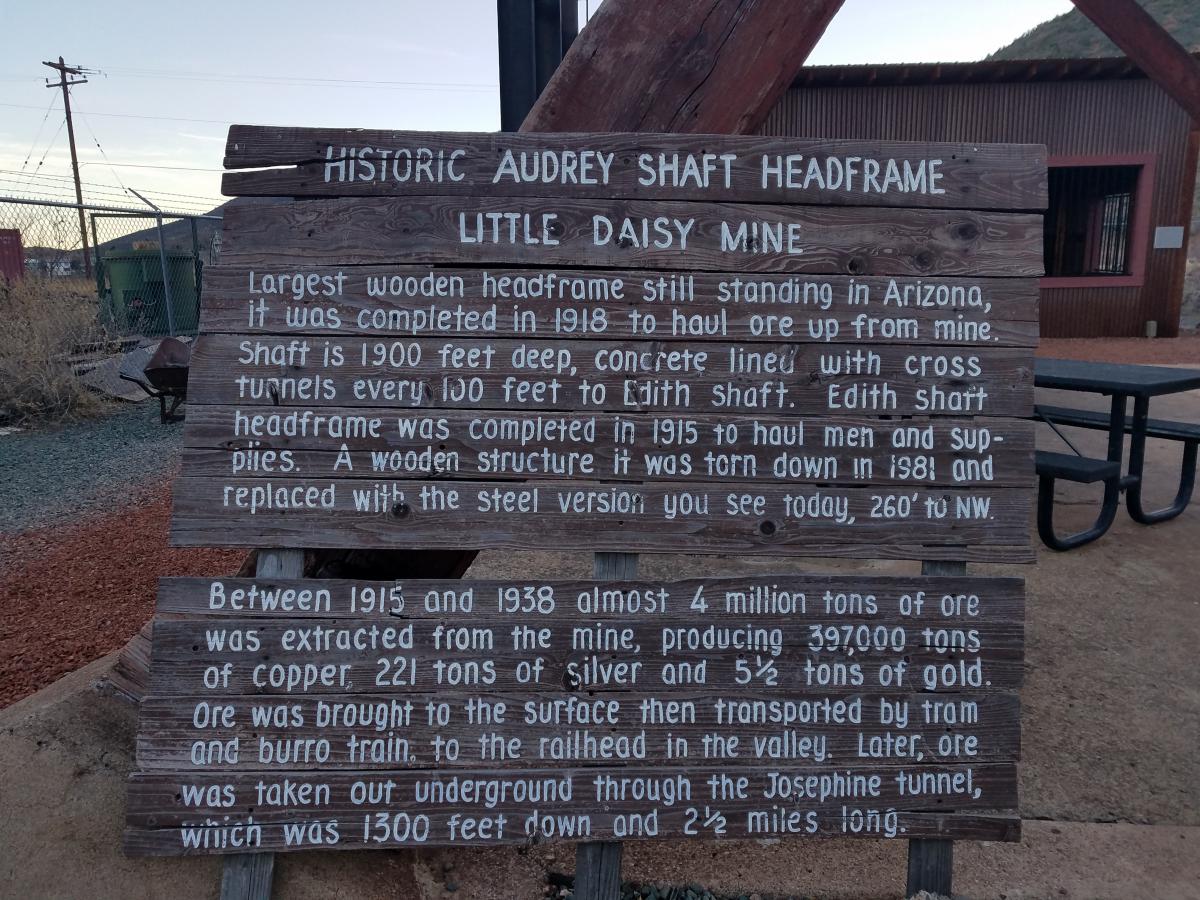 HISTORIC AUDREY SHAFT HEADFRAME
LITTLE DAISY MINE
Largest wooden headframe still standing in Arizona,
it was completed in 1918 to haul ore up from mine.
Shaft is 1900 feet deep, concrete lined with cross
tunnels every 100 feet to Edith shaft. Edith shaft
headframe was completed in 1915 to haul men and sup-
plies. A wooden structure it was torn down in 1981 and
replaced with the steel version you see today, 260' to NW.
Between 1915 and 1938 almost 4 million tons of ore
was extracted from the mine, producing 397,000 tons
of copper, 221 tons of silver and 5½ tons of gold.
Ore was brought to the surface then transported by tram
and burro train, to the railhead in the valley. Later, ore
was taken out underground through the Josephine tunnel,
which was 1300 feet down and 2½ miles long.